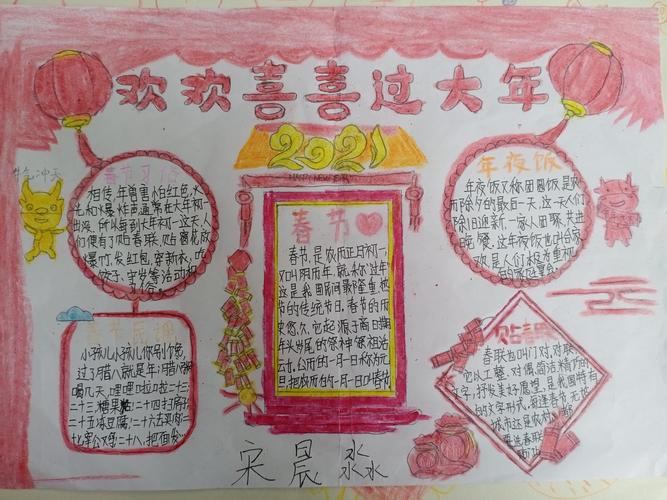 欢欢喜喜过大年
2021
HAPPY NEW YEAR
牛气冲天
春节习俗
相传,年兽害怕红色,火
光和爆炸声,通常在大年初一
出没,所以每到大年初一这天,人
们便有了贴春联,贴窗花,放
爆竹,发红包,穿新衣,吃
饺子,守岁等活动和
习俗。
春节
春节,是农历正月初一,
又叫阴历年,就称“过年”
这是我国民间最隆重最
的传统节日。春节的历
史悠久,它起源于商日期
年头岁尾的祭神祭祖活
公历的一月一日称为元
旦,把农历的一月一日叫春节
年夜饭
年夜饭又称团圆饭是农
历除夕的最后一天,这一天人们
除旧迎新,一家人团聚,共进
晚餐,这年夜饭也叫合家
欢,是人们极为重视
的家庭宴会
小孩儿小孩儿你别馋,
过了腊八就是年,腊八粥
喝几天,哩哩啦啦二十三,
二十三,糖果粘,二十四扫房
二十五冻豆腐,二十六去买肉二
七,宰公鸡二十八,把面发
贴春联
春联也叫门对,对联
它以工整、对偶、简洁精巧的
文字,抒发美好愿望,是我国特有
的文学形式,每逢春节,无论
城市还是农村
要选春联
宋晨淼